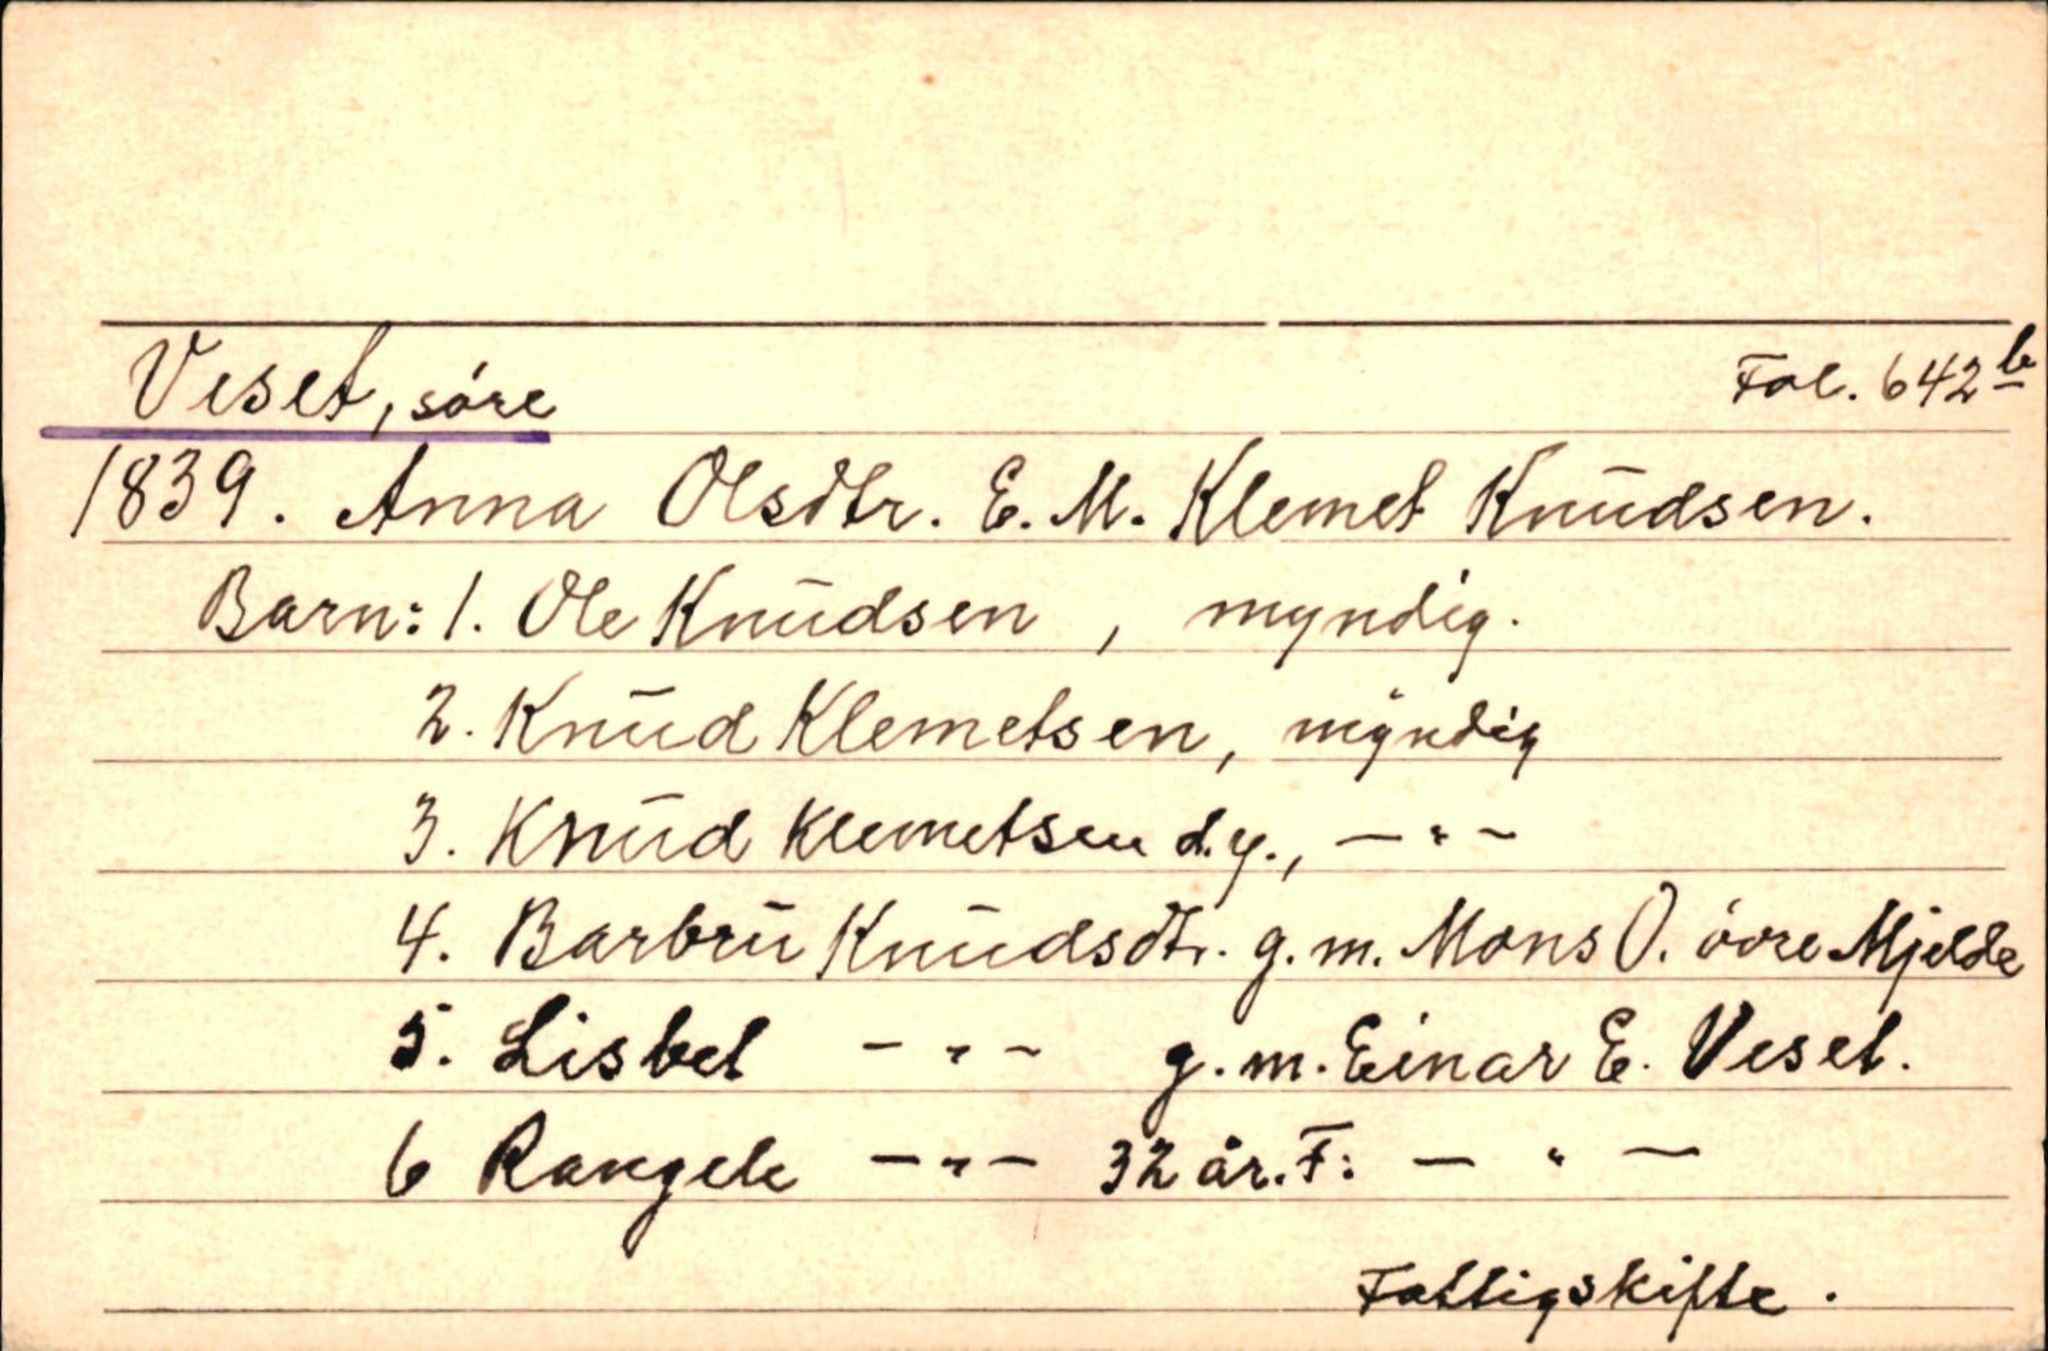 Veset, söre Fol. 642b
1839. Anna Olsdtr. E. M. Klemet Knudsen.
Barn: 1. Ole Knudsen, myndig.
2. Knud Klemetsen, myndig
3. Knud Klemetsen d.y., — " —
4. Barbru Knudsdtr. g. m. Mons O. övre Mjelde
5. Lisbet — " — g. m. Einar E. Veset.
6 Rangele — " — 32 år. F: — " —
Fattigskifte.